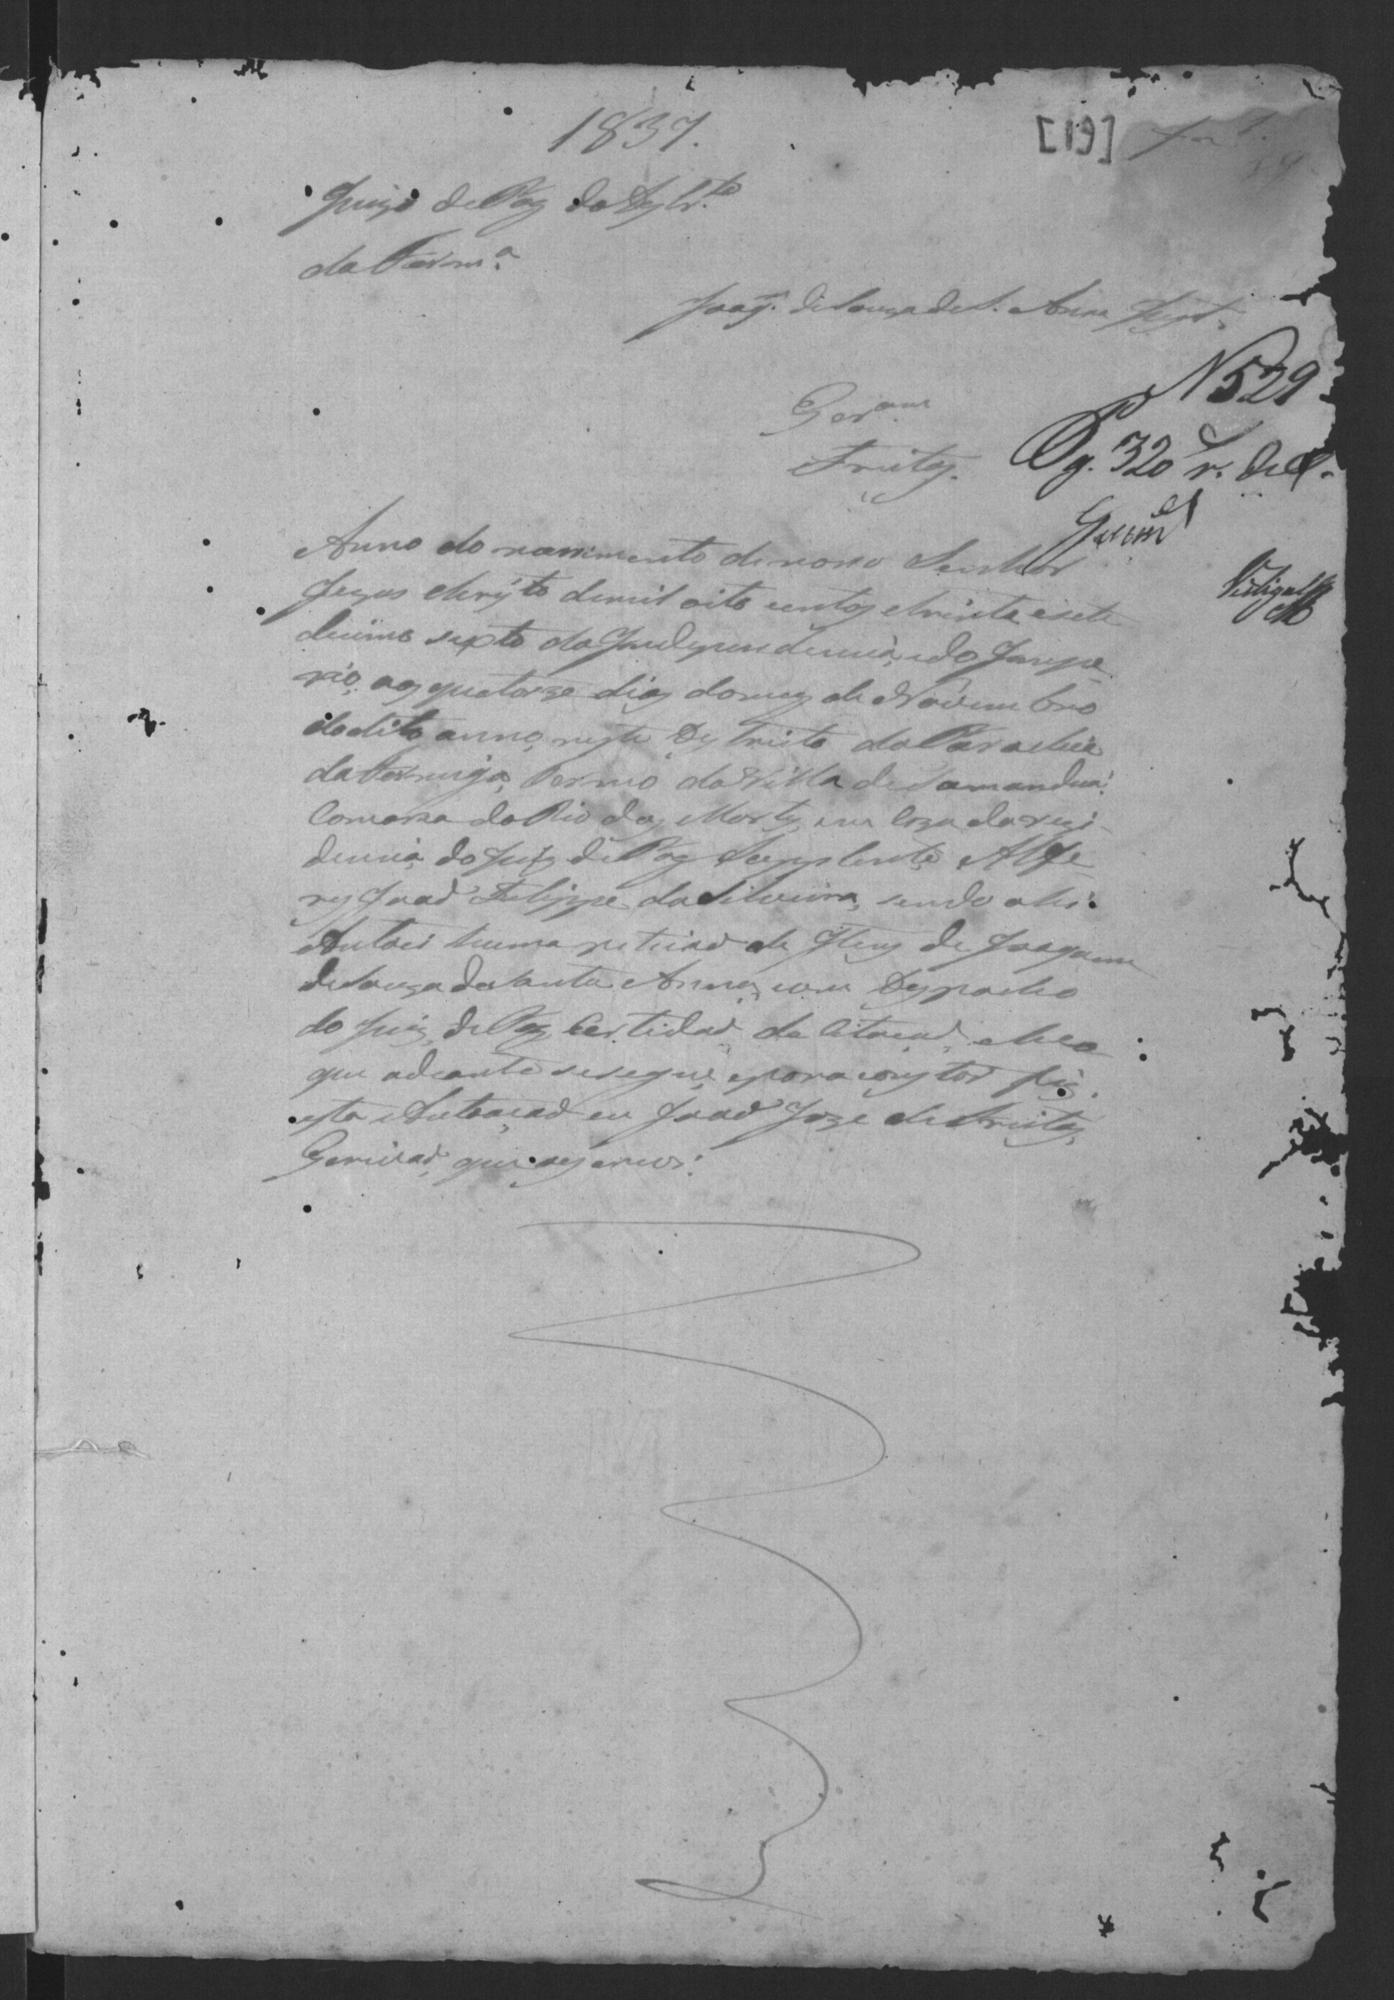 1837.
[19]
Juizo de Paz do Dystr.to
da Form.a
Joaq.m de Souza de S. Anna
Freitas.
N 529
Pg. 320 r. de
Anno do nascimento de nosso Senhor
Jezus christo de mil oito centos e trinta e sete
decimo sexto da Independencia, e do Impe
rio, aos quatorze dias do mes de Novembro
do dito anno, neste Destricto da Parochia
da Formiga, Termo da Villa de Tamandua,
Comarca do Rio das Mortes, em Caza da rezi
dencia do Juiz de Paz Supplente Alfe
res Joaõ Felippe da Silveira, sendo ahi
Autoei huma petiçaõ de Itens de Joaquim
de Souza de Santa Anna, com Despacho
do Juiz de Paz, Certidaõ de Citaçaõ,
que adeante se segue, e para constar fis
esta Autoaçaõ eu Joaõ Joze de Freitas,
Escrivaõ, que as escrevi.